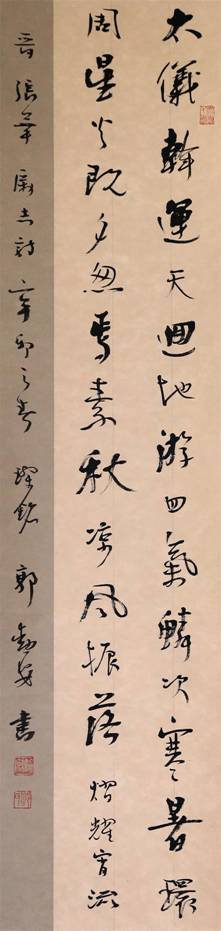 太儀斡運天迴地游四氣鱗次寒暑環
周星火既夕忽焉素秋凉風振落熠耀宵流
晉張華勵志詩辛卯之春郭書